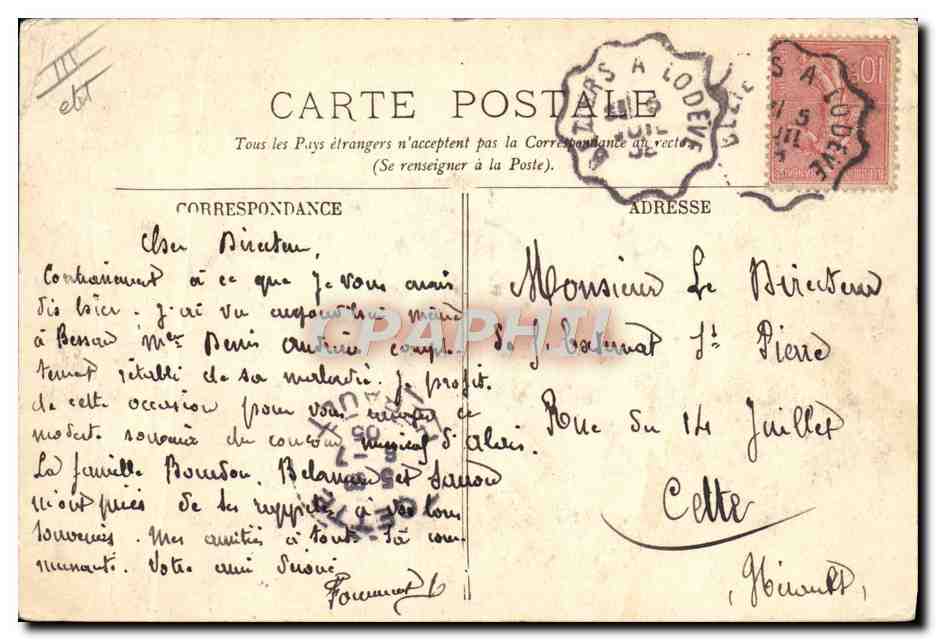 III
CARTE POSTALE
Tous les Pays étrangers n'acceptent pas la Correspondance au recto
(Se renseigner à la Poste).
BEZIERS A LODEVE
5
JUIL
BEZIERS A LODEVE
5
JUIL
10
CORRESPONDANCE
ADRESSE
Cher Directeur,
Contrairement à ce que je vous avais
dis hier. J'ai vu aujourd'hui même
à Bessan Mer Denis
rétabli de sa maladie. Je profit.
de cette occasion pour vous envoyer ce
modeste souvenir du concours musical d'Alais.
La famille Bourdon, Belamand et
m'ont priés de les rappeler à vos bons
souvenirs. Mes amitiés à toute la com
munauté. Votre ami dévoué
Monsieur Le Directeur
de l'Externat St Pierre
Rue du 14 Juillet
Cette
(Hérault)
CETTE
05
CPAPHIL